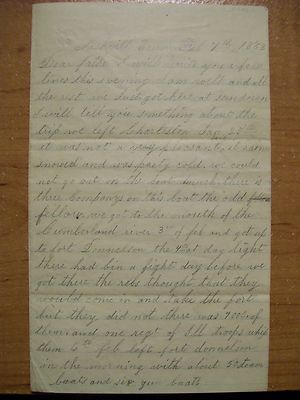 Nashvill Tenn Feb 7th, 1863
Dear father I will write you a few
lines this evening I am well and all
the rest we Just got here at sundown
I will tell you something about the
trip we left Charleston Jan 28
it was not a very pleasant, it rain
snowed and was prety cold. we could
not go out on the boat much. there is
three companys on this boat the old
fellow. we got to the mouth of the
Cumberland river 3" of feb and got up
to fort Donnelson the 4" at day light
there had bin a fight day before we
got there the rebs thought that they
would come in and take the fort
but they did not there was 7000 of
them. and one regt of Ill troops whip
them 5th feb left fort donnelson
in the morning with about 50 steam
boats and six gun boats